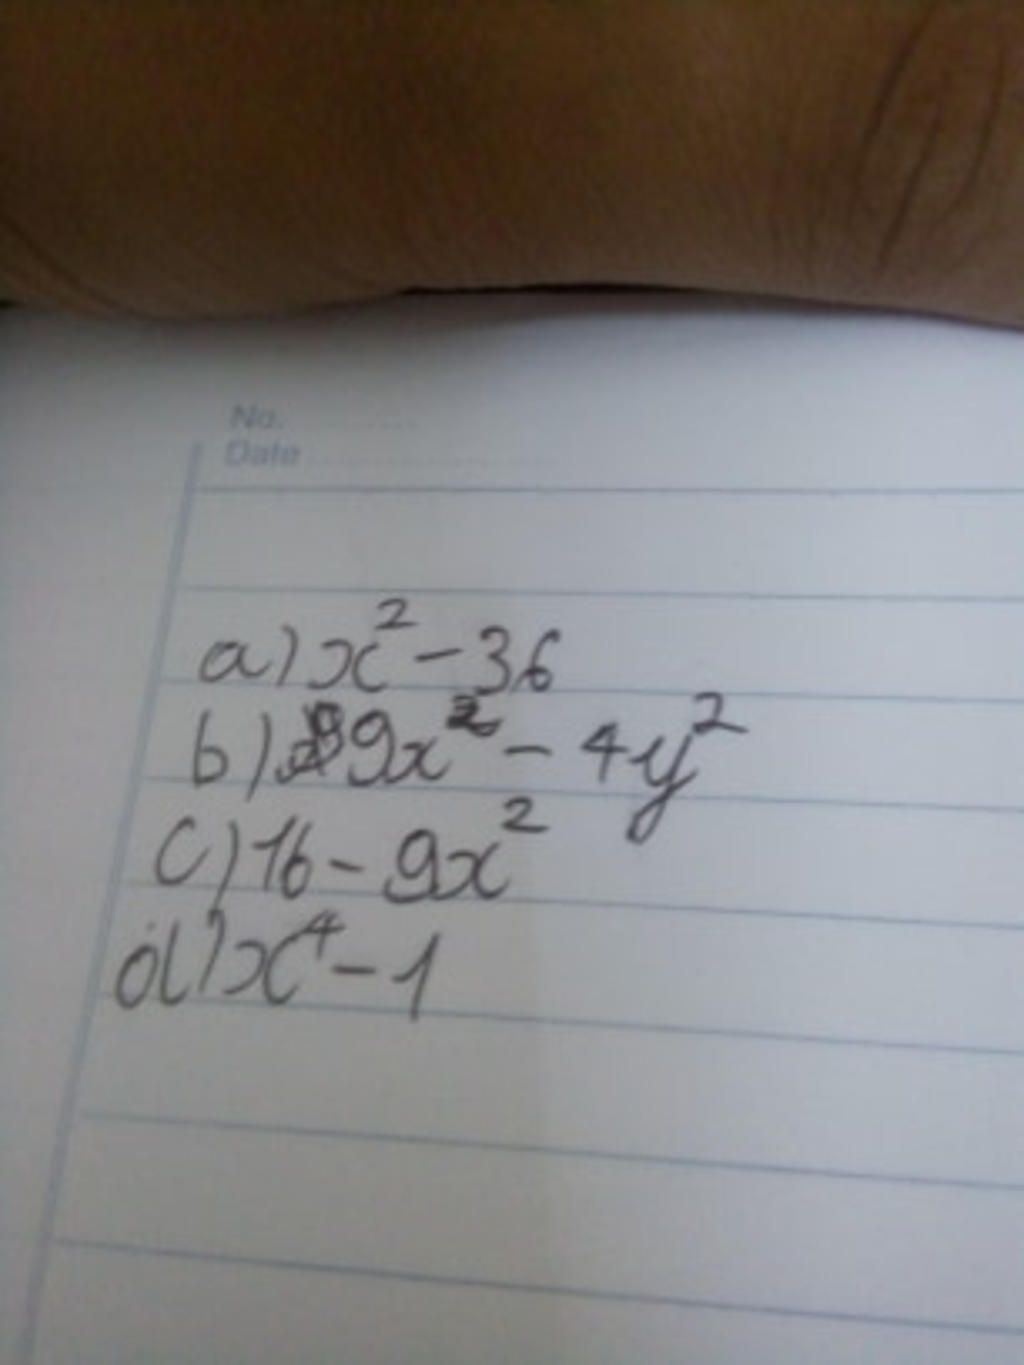 No.
Date
a) x² - 36
b) 9x² - 4y²
c) 16 - 9x²
d) x⁴ - 1